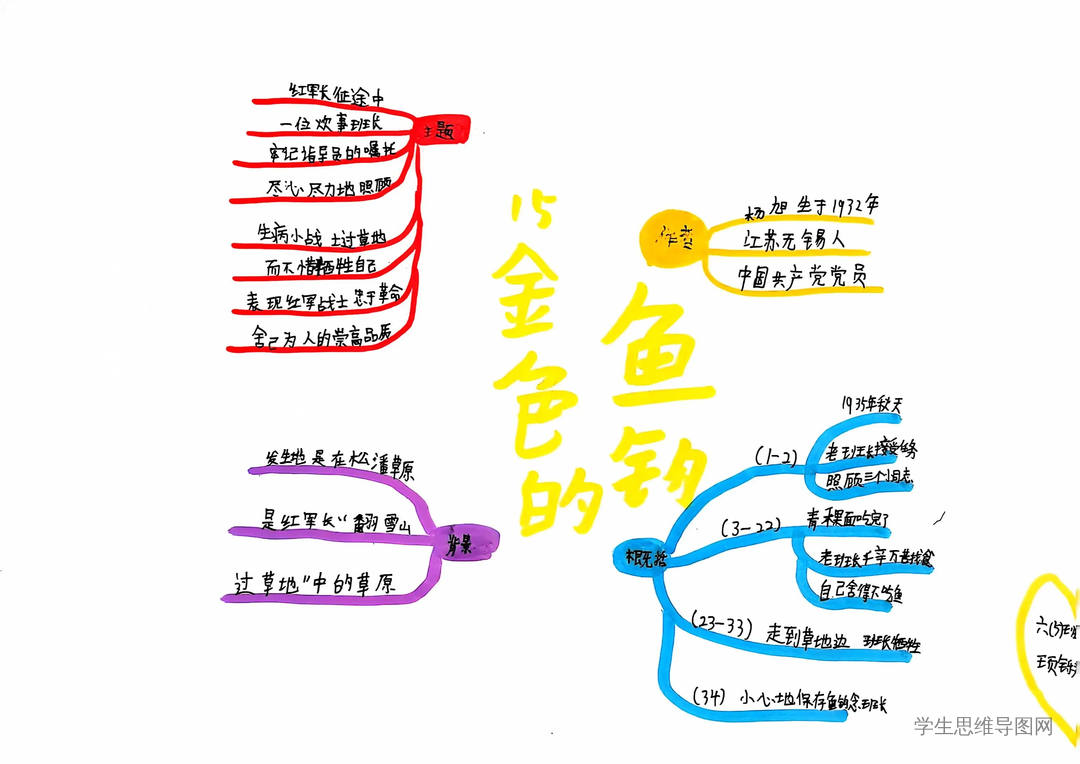 主题
红军长征途中
一位炊事班长
牢记指导员的嘱托
尽心尽力地照顾
生病小战士过草地
而不惜牺牲自己
表现红军战士忠于革命
舍己为人的崇高品质
15
金色的
鱼钩
作者
杨旭生于1932年
江苏无锡人
中国共产党党员
背景
发生地是在松潘草原
是红军长“翻雪山
过草地”中的草原
概括
(1-2)
1935年秋天
老班长接受任务
照顾三个小同志
(3-22)
青稞面吃完了
老班长千辛万苦找食
自己舍得不吃鱼
(23-33) 走到草地边 班长牺牲
(34) 小心地保存鱼钩念班长
六(5)班
学生思维导图网